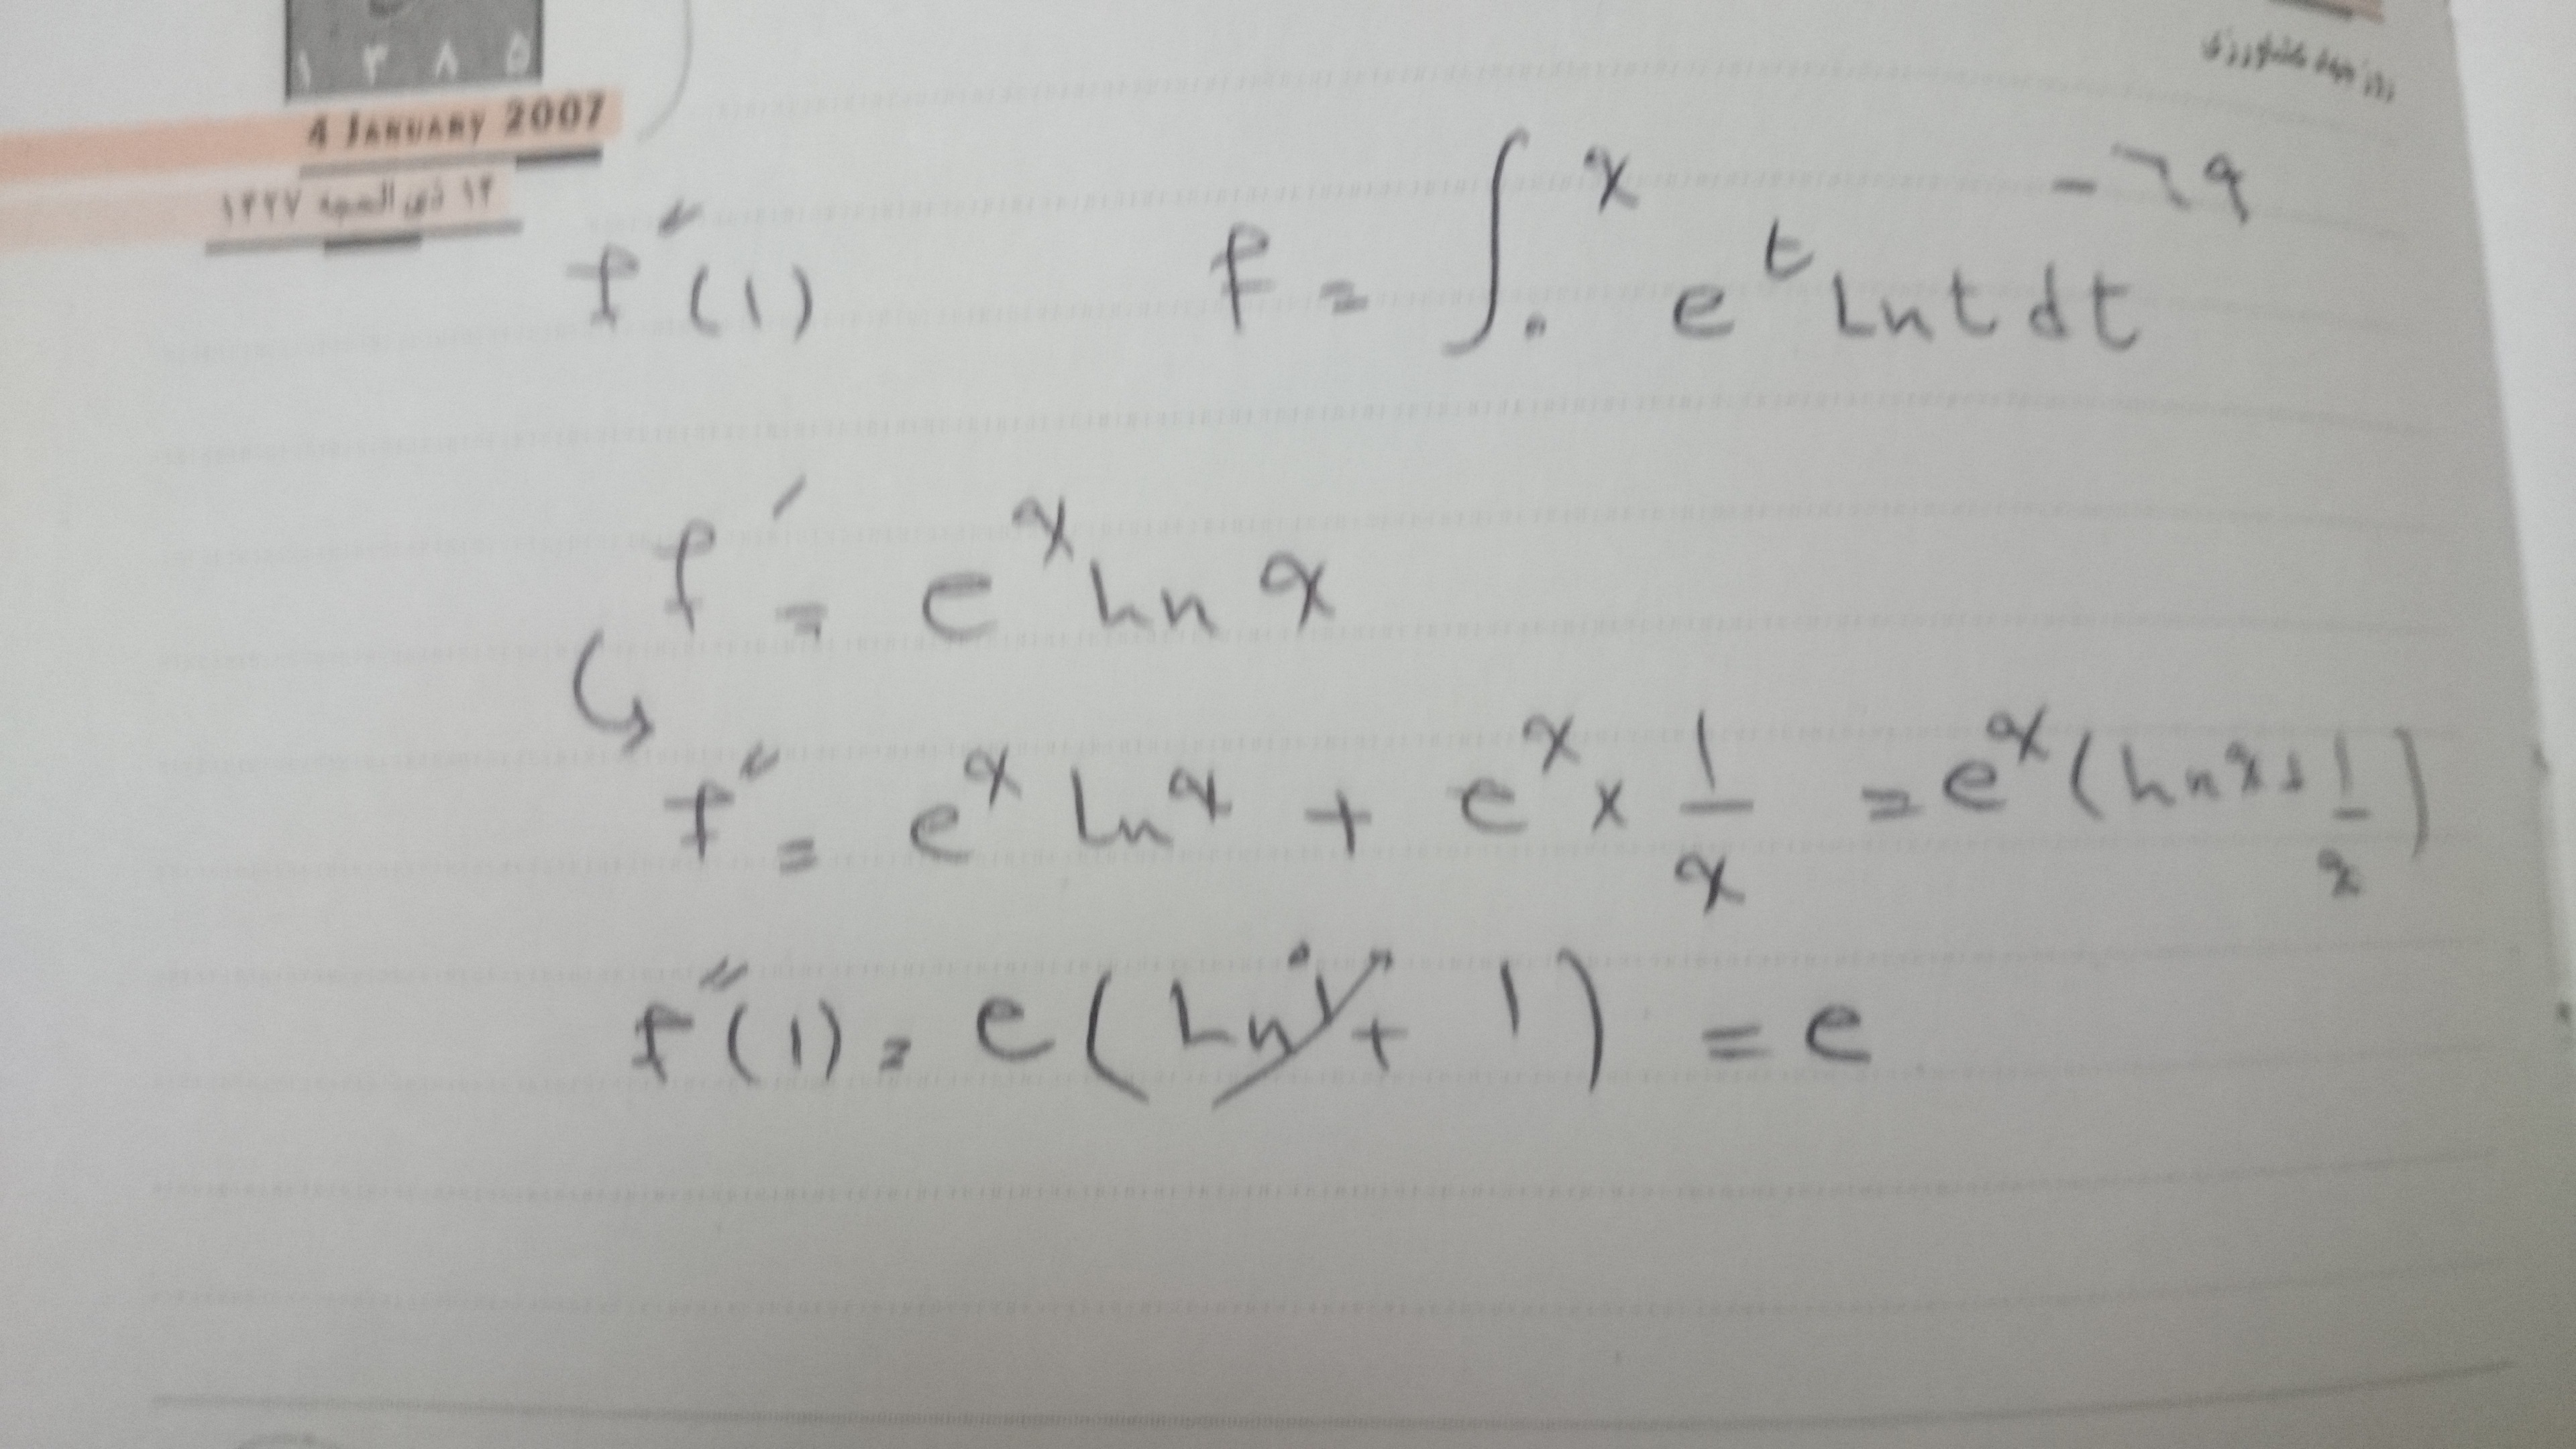 ۱۳۸۵
4 JANUARY 2007
۱۴ ذی الحجه ۱۴۲۷
f''(1)   f = ∫₀ˣ eᵗ Ln t dt   -۶۹
f' = eˣ Ln x
f'' = eˣ Ln x + eˣ × 1/x = eˣ (Ln x + 1/x)
f''(1) = e (Ln 1 + 1) = e